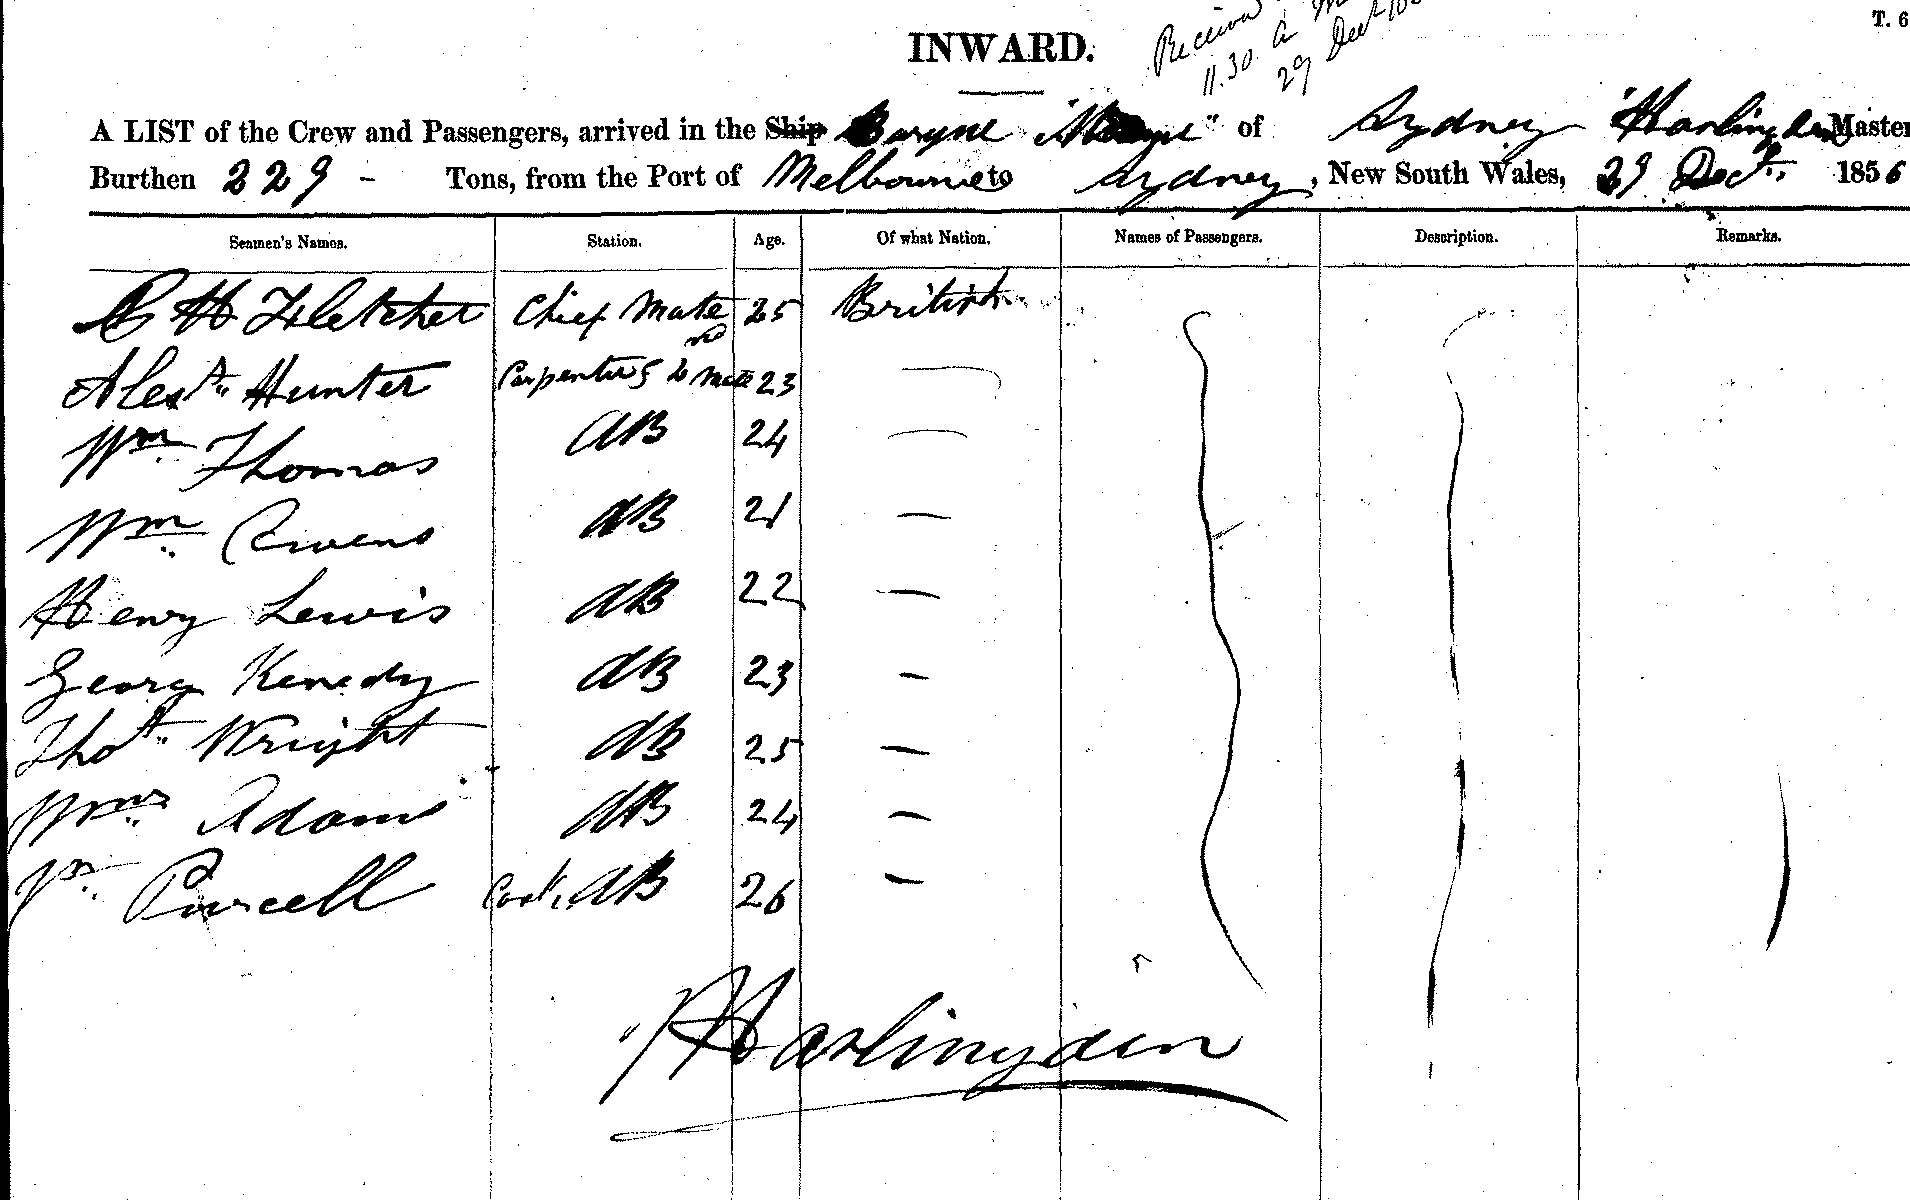 T. 6
INWARD.
Received
11.30 a m
29 Dec
A LIST of the Crew and Passengers, arrived in the Ship of Sydney Harlingden Master
Burthen 229 - Tons, from the Port of Melbourne to Sydney, New South Wales, 29 Decr. 1856
Seamen's Names. Station. Age. Of what Nation. Names of Passengers. Description. Remarks.
H Fletcher Chief Mate 25 British
Alexr. Hunter Carpenter & 2nd Mate 23
Wm. Thomas AB 24
Wm. Owens AB 21
Henry Lewis AB 22 —
George Kenedy AB 23 —
Thos. Wright AB 25 —
Wm. Adams AB 24 —
Wm. Purcell Cook, AB 26 —
Harlingden